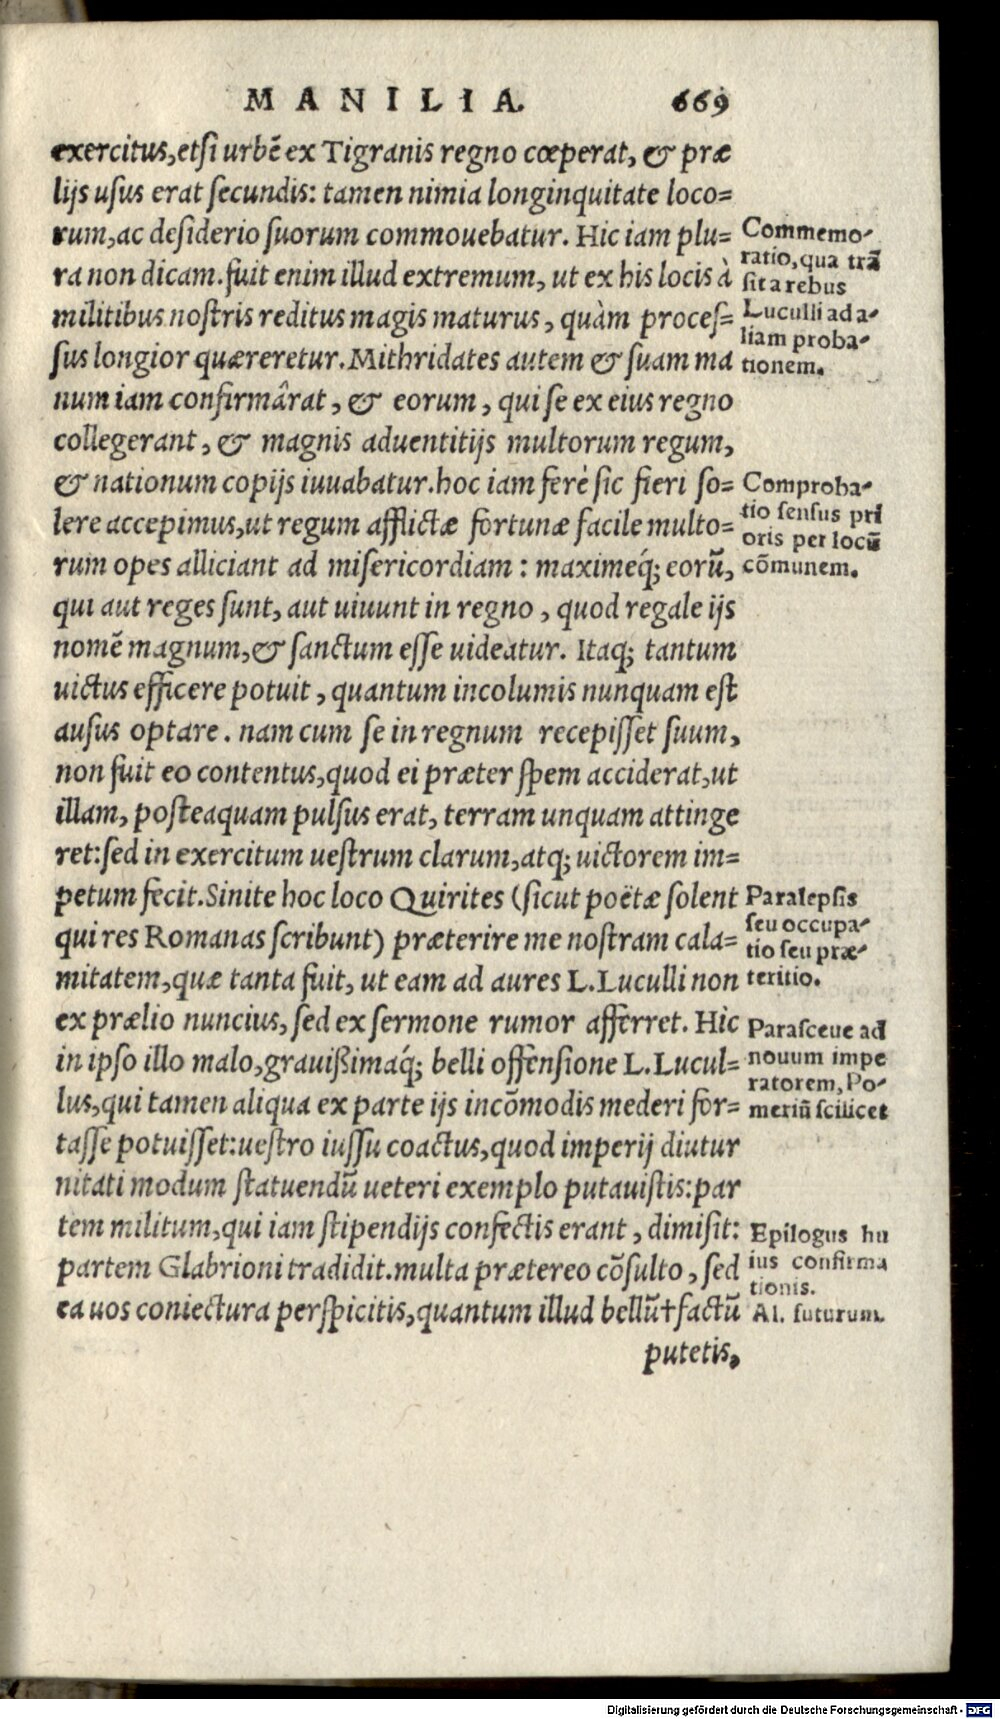 MANILIA. 669
exercitus, etsi urbē ex Tigranis regno cœperat, & præ
lijs usus erat secundis: tamen nimia longinquitate loco=
rum, ac desiderio suorum commouebatur. Hic iam plu=
ra non dicam. fuit enim illud extremum, ut ex his locis à
militibus nostris reditus magis maturus, quàm proces=
sus longior quæreretur. Mithridates autem & suam ma
num iam confirmârat, & eorum, qui se ex eius regno
collegerant, & magnis aduentitijs multorum regum,
& nationum copijs iuuabatur. hoc iam ferè sic fieri so=
lere accepimus, ut regum afflictæ fortunæ facile multo=
rum opes alliciant ad misericordiam: maximéq; eorū,
qui aut reges sunt, aut uiuunt in regno, quod regale ijs
nomē magnum, & sanctum esse uideatur. Itaq; tantum
uictus efficere potuit, quantum incolumis nunquam est
ausus optare. nam cum se in regnum recepisset suum,
non fuit eo contentus, quod ei præter spem acciderat, ut
illam, posteaquam pulsus erat, terram unquam attinge
ret: sed in exercitum uestrum clarum, atq; uictorem im=
petum fecit. Sinite hoc loco Quirites (sicut poëtæ solent
qui res Romanas scribunt) præterire me nostram cala=
mitatem, quæ tanta fuit, ut eam ad aures L. Luculli non
ex prælio nuncius, sed ex sermone rumor afferret. Hìc
in ipso illo malo, grauißimaq́; belli offensione L. Lucul=
lus, qui tamen aliqua ex parte ijs incōmodis mederi for=
tasse potuisset: uestro iussu coactus, quod imperij diutur
nitati modum statuendū ueteri exemplo putauistis: par
tem militum, qui iam stipendijs confectis erant, dimisit:
partem Glabrioni tradidit. multa prætereo cōsulto, sed
ea uos coniectura perspicitis, quantum illud bellū† factū
putetis,
Commemo-
ratio, qua trā
sit a rebus
Luculli ad a-
liam proba-
tionem.
Comproba-
tio sensus pri
oris per locū
cōmunem.
Paralepsis
seu occupa-
tio seu præ-
teritio.
Parasceue ad
nouum impe
ratorem, Po-
meriū scilicet
Epilogus hu
ius confirma
tionis.
Al. futurum.
Digitalisierung gefördert durch die Deutsche Forschungsgemeinschaft - DFG